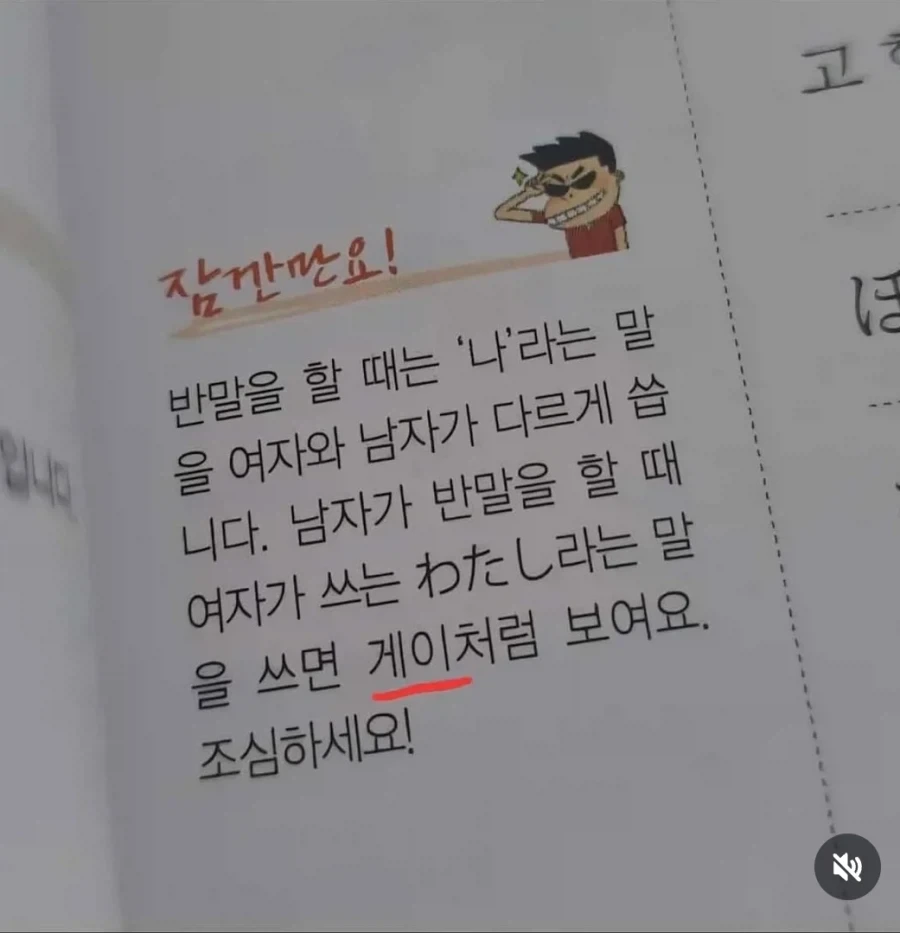 잠깐만요!
반말을 할 때는 ‘나’라는 말
을 여자와 남자가 다르게 씁
니다. 남자가 반말을 할 때
여자가 쓰는 わたし라는 말
을 쓰면 게이처럼 보여요.
조심하세요!
입니다
고
ほ